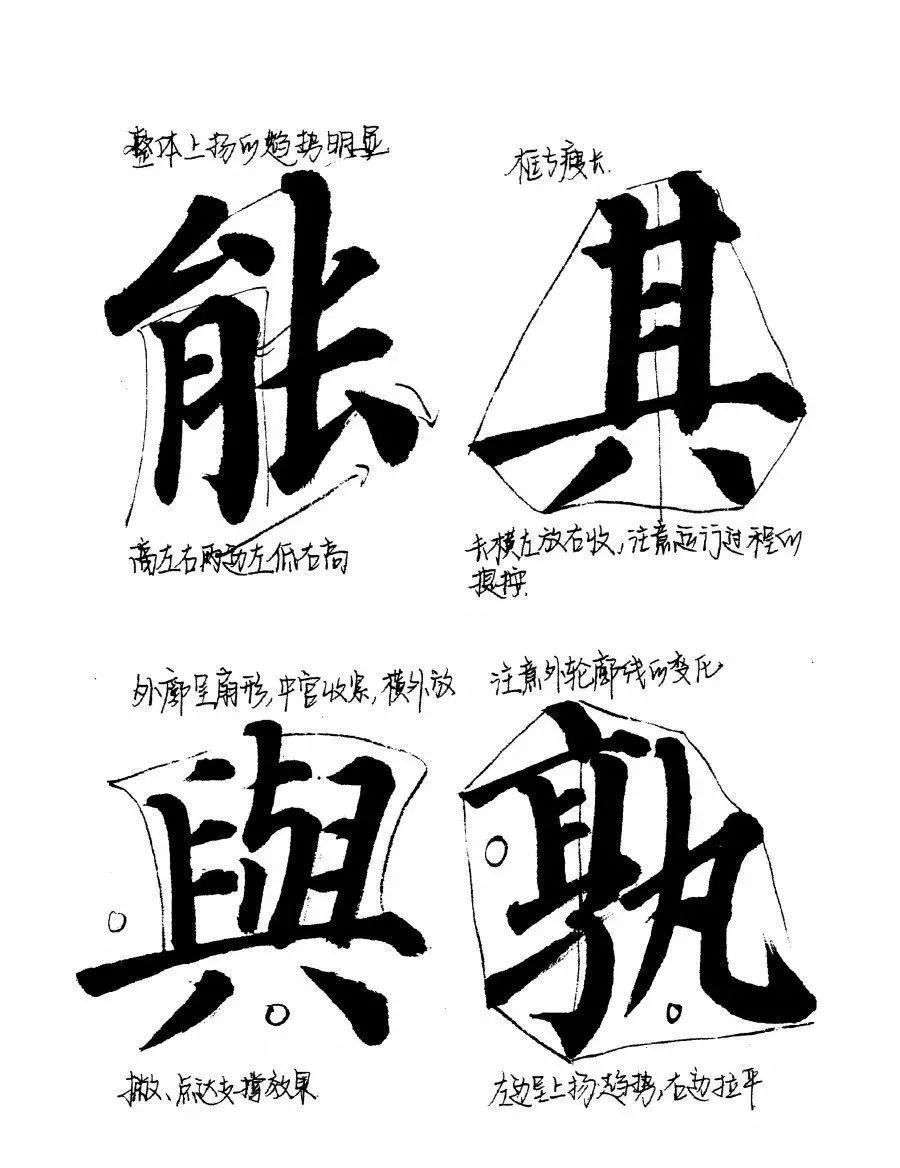 整体上扬的趋势明显
能
高左右两边左低右高
框方瘦长.
其
长横左放右收,注意运行过程的
提按.
外廓呈扇形,中宫收紧,横外放
與
撇、点达支撑效果
注意外轮廓线的变化
孰
左边呈上扬趋势,右边拉平